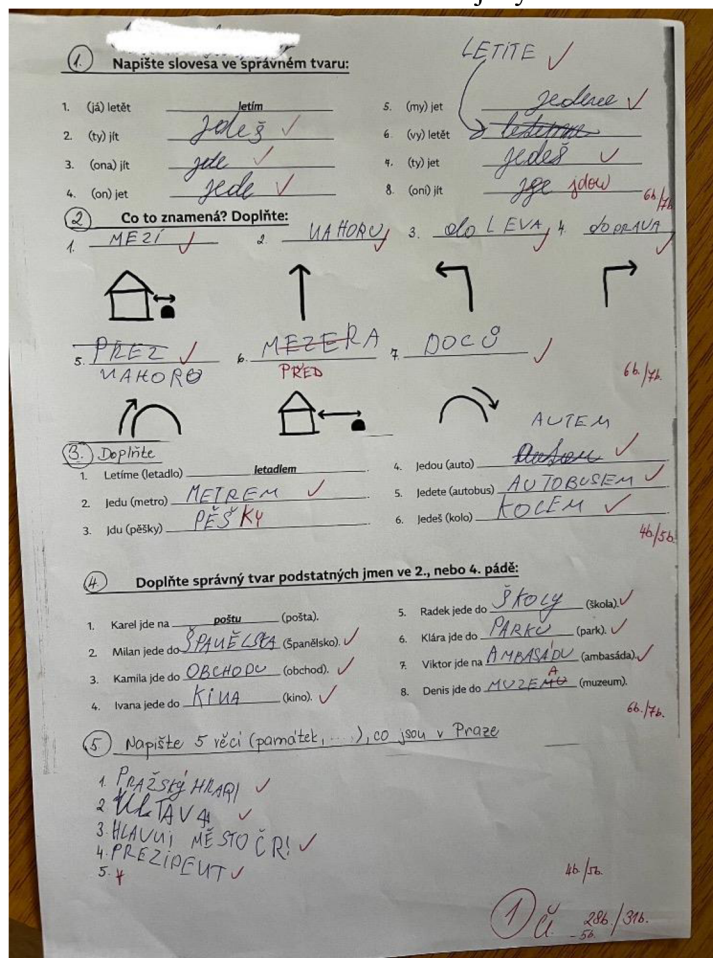 1. Napište slovesa ve správném tvaru:
LETÍTE ✓
1. (já) letět letím
2. (ty) jít jdeš ✓
3. (ona) jít jde ✓
4. (on) jet jede ✓
5. (my) jet jedeme ✓
6. (vy) letět
7. (ty) jet jedeš ✓
8. (oni) jít jdou
6b./7b.
2 Co to znamená? Doplňte:
1. MEZÍ ✓ 2. NAHORU ✓ 3. do LEVA ✓ 4. doPRAVA ✓
5. PŘEZ ✓ 6. MEZERA 7. DOCŮ ✓
NAHORU PŘED 6b./7b.
3. Doplňte
AUTEM
1. Letíme (letadlo) letadlem
2. Jedu (metro) METREM ✓
3. Jdu (pěšky) PĚŠKY
4. Jedou (auto) ✓
5. Jedete (autobus) AUTOBUSEM ✓
6. Jedeš (kolo) KOLEM ✓
4b./5b.
4 Doplňte správný tvar podstatných jmen ve 2., nebo 4. pádě:
1. Karel jde na poštu (pošta).
2 Milan jede do ŠPANĚLSKA (Španělsko). ✓
3. Kamila jde do OBCHODU (obchod). ✓
4. Ivana jede do KINA (kino). ✓
5. Radek jede do ŠKOLY (škola). ✓
6. Klára jde do PARKU (park). ✓
7. Viktor jde na AMBASÁDU (ambasáda). ✓
8. Denis jde do MUZEA (muzeum).
6b./7b.
5 Napište 5 věcí (památek, ...), co jsou v Praze
1. PRAŽSKÝ HRAD ✓
2 VLTAVA ✓
3. HLAVNÍ MĚSTO ČR! ✓
4. PREZIDENT ✓
5.
4b./5b.
1 28b./31b.
-5b.